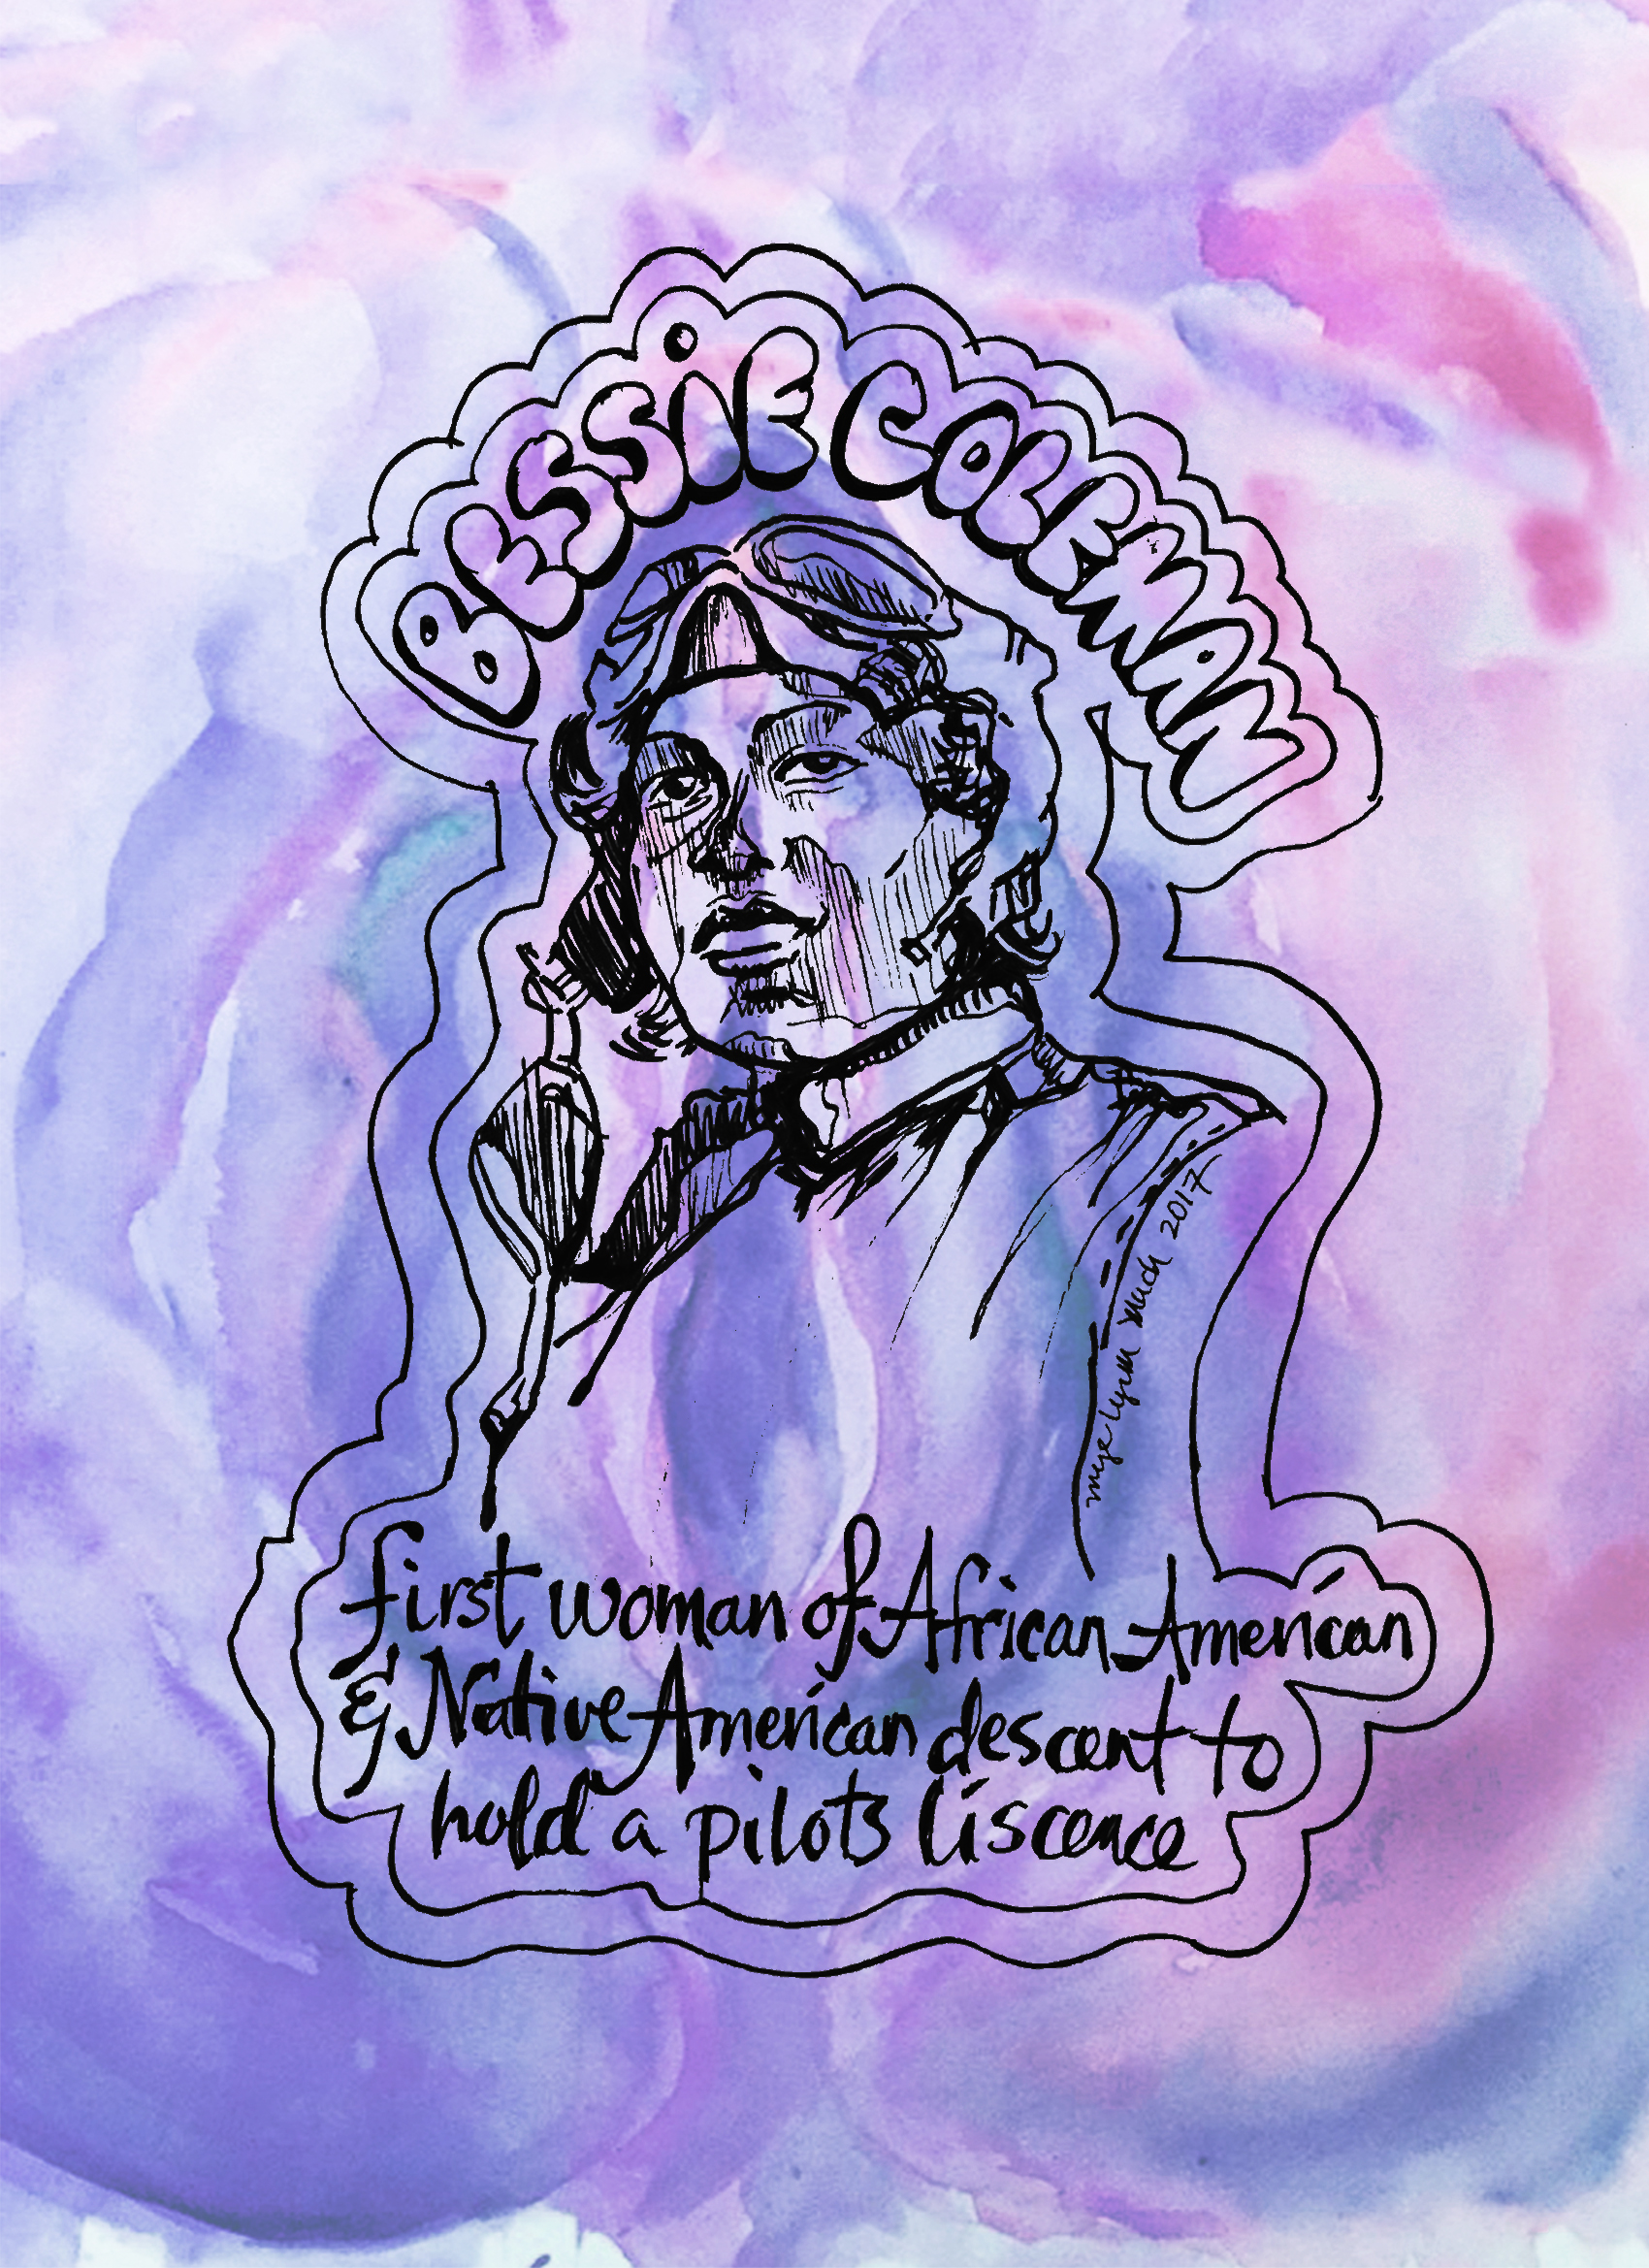 BESSiE COLEMAN
March 2017
first woman of African American
& Native American descent to
hold a pilots liscence